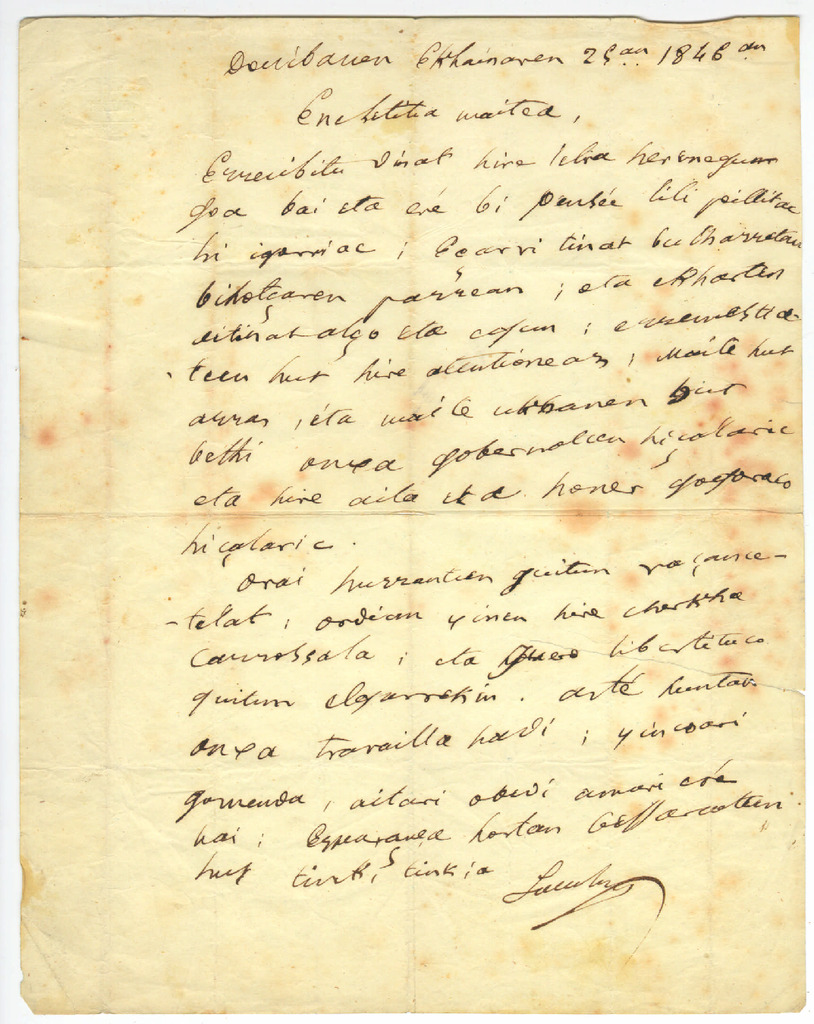 Donibanen Ekhainaren 25an.. 1846 an
maitea,
Errecibitu dinat hire letra herenegun
goa bai eta eré bi pensée lili pollitac
hi igorriac ; Eçarri tinat butharretan
bihotçaren parrean ; eta ekharten
ditinat algo eta ; erremestia-
-tcen hut hire attentioneaz ; Maite hut
arras , eta maite ukhanen hut
bethi onxa gobernatcen hiçalaric
eta hire aita eta honer gogoraco
hiçalaric .
Orai hurrantcen guitun vaçance-
-telat ; ordian yinen hire cherkha
carrossala ; eta guero libertituco
guitun elgarrekin . arté huntan
onxa travailla hadi ; yincoari
gomenda , aitari obedi amari eré
bai ; Esparança hortan bessarcatcen
hut tink, tinkia